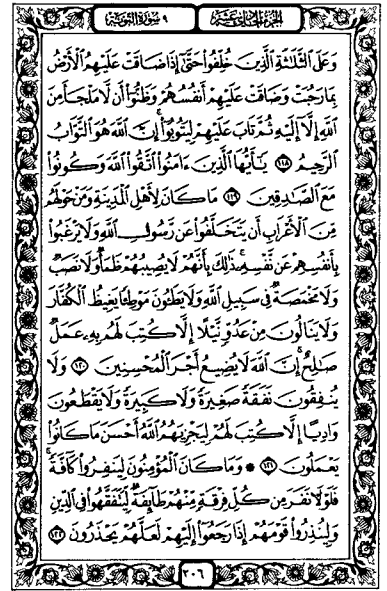 الجزء الحادي عشر
٩ سورة التوبة
وَعَلَى ٱلثَّلَٰثَةِ ٱلَّذِينَ خُلِّفُوا۟ حَتَّىٰٓ إِذَا ضَاقَتْ عَلَيْهِمُ ٱلْأَرْضُ
بِمَا رَحُبَتْ وَضَاقَتْ عَلَيْهِمْ أَنفُسُهُمْ وَظَنُّوٓا۟ أَن لَّا مَلْجَأَ مِنَ
ٱللَّهِ إِلَّآ إِلَيْهِ ثُمَّ تَابَ عَلَيْهِمْ لِيَتُوبُوٓا۟ إِنَّ ٱللَّهَ هُوَ ٱلتَّوَّابُ
ٱلرَّحِيمُ ١١٨ يَٰٓأَيُّهَا ٱلَّذِينَ ءَامَنُوا۟ ٱتَّقُوا۟ ٱللَّهَ وَكُونُوا۟
مَعَ ٱلصَّٰدِقِينَ ١١٩ مَا كَانَ لِأَهْلِ ٱلْمَدِينَةِ وَمَنْ حَوْلَهُم
مِّنَ ٱلْأَعْرَابِ أَن يَتَخَلَّفُوا۟ عَن رَّسُولِ ٱللَّهِ وَلَا يَرْغَبُوا۟
بِأَنفُسِهِمْ عَن نَّفْسِهِۦ ذَٰلِكَ بِأَنَّهُمْ لَا يُصِيبُهُمْ ظَمَأٌ وَلَا نَصَبٌ
وَلَا مَخْمَصَةٌ فِى سَبِيلِ ٱللَّهِ وَلَا يَطَـُٔونَ مَوْطِئًا يَغِيظُ ٱلْكُفَّارَ
وَلَا يَنَالُونَ مِنْ عَدُوٍّ نَّيْلًا إِلَّا كُتِبَ لَهُم بِهِۦ عَمَلٌ
صَٰلِحٌ إِنَّ ٱللَّهَ لَا يُضِيعُ أَجْرَ ٱلْمُحْسِنِينَ ١٢٠ وَلَا
يُنفِقُونَ نَفَقَةً صَغِيرَةً وَلَا كَبِيرَةً وَلَا يَقْطَعُونَ
وَادِيًا إِلَّا كُتِبَ لَهُمْ لِيَجْزِيَهُمُ ٱللَّهُ أَحْسَنَ مَا كَانُوا۟
يَعْمَلُونَ ١٢١ ۞ وَمَا كَانَ ٱلْمُؤْمِنُونَ لِيَنفِرُوا۟ كَآفَّةً
فَلَوْلَا نَفَرَ مِن كُلِّ فِرْقَةٍ مِّنْهُمْ طَآئِفَةٌ لِّيَتَفَقَّهُوا۟ فِى ٱلدِّينِ
وَلِيُنذِرُوا۟ قَوْمَهُمْ إِذَا رَجَعُوٓا۟ إِلَيْهِمْ لَعَلَّهُمْ يَحْذَرُونَ ١٢٢
٢٠٦